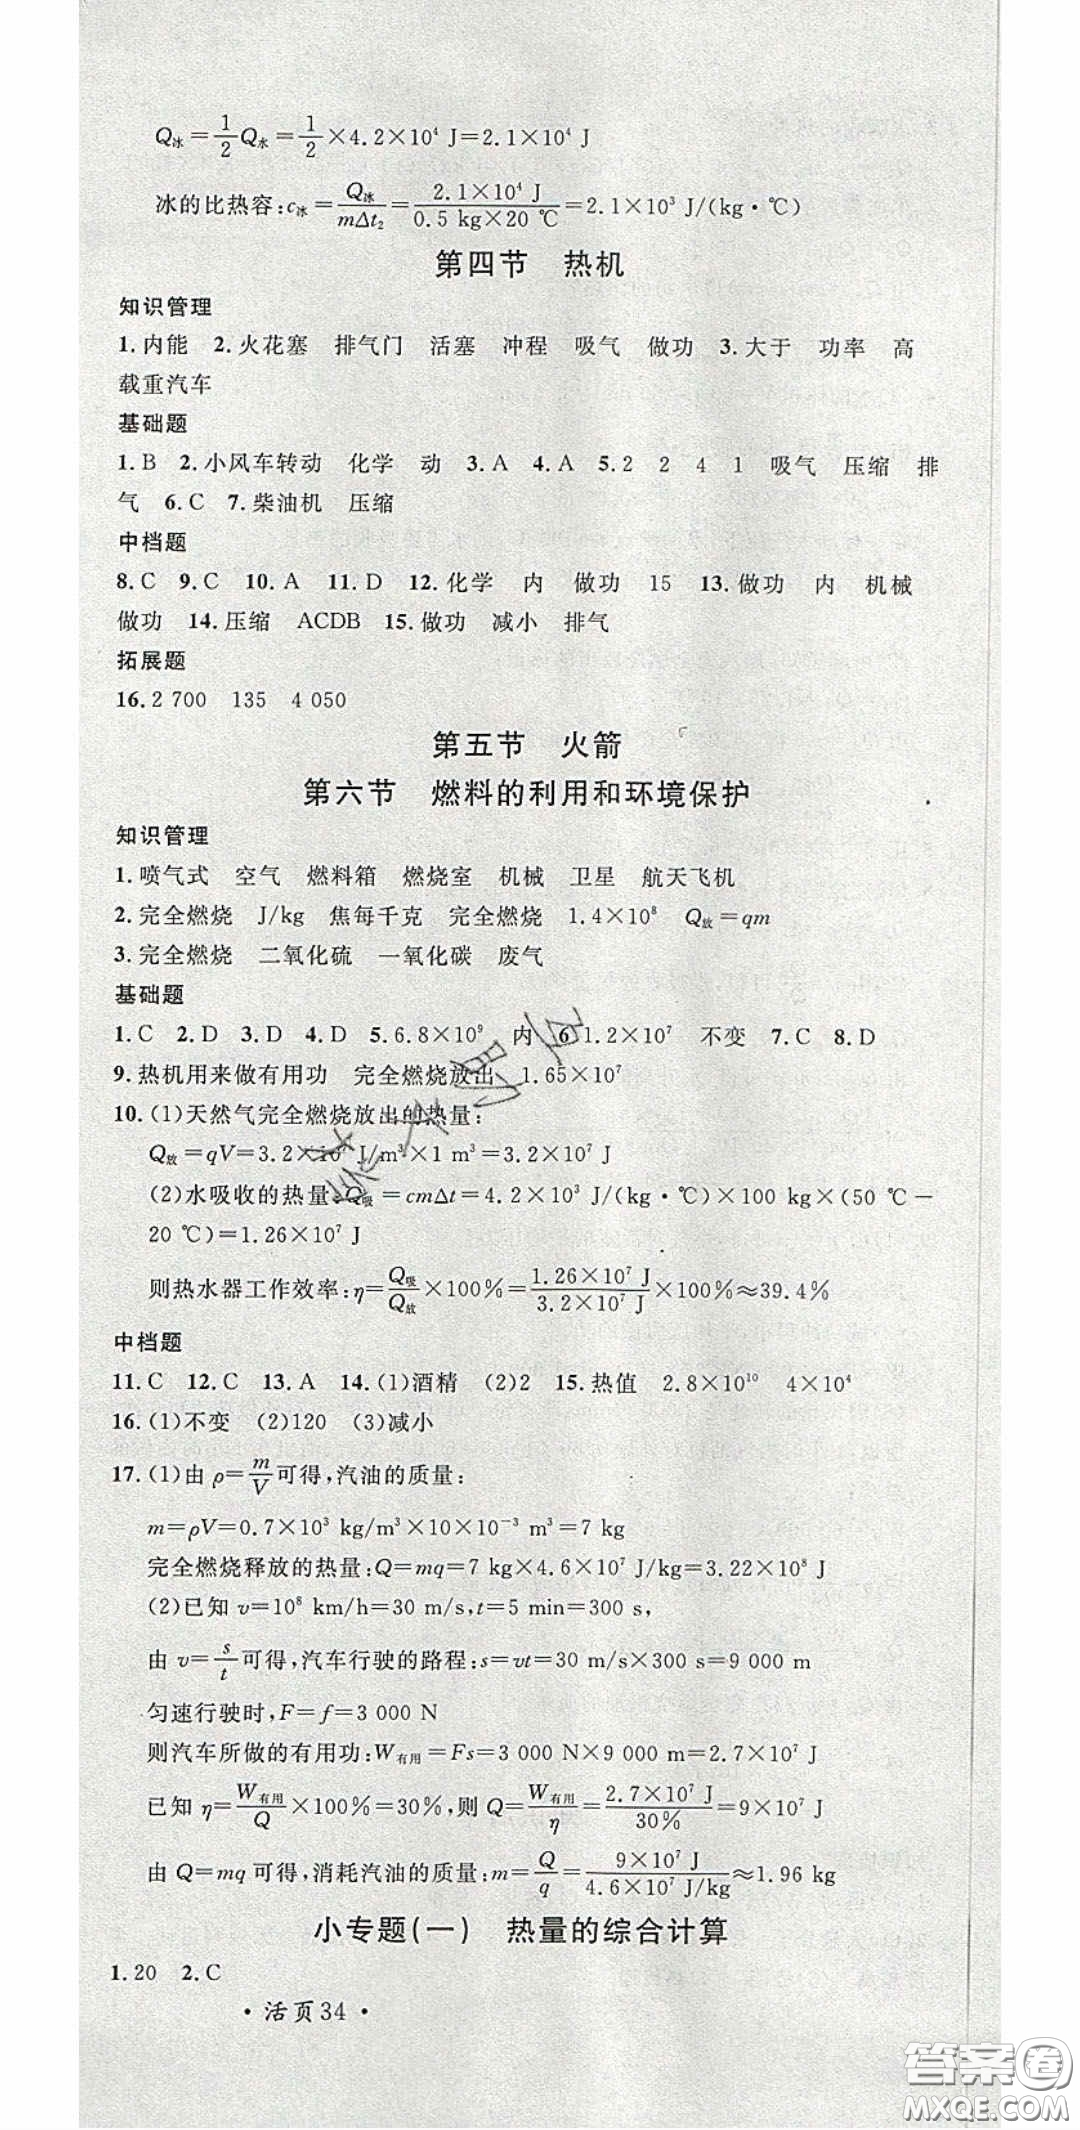 Q冰=1/2Q水=1/2×4.2×10⁴ J=2.1×10⁴ J
冰的比热容:c冰=Q冰/mΔt₂=2.1×10⁴ J/0.5 kg×20 ℃=2.1×10³ J/(kg·℃)
第四节 热机
知识管理
1.内能 2.火花塞 排气门 活塞 冲程 吸气 做功 3.大于 功率 高
载重汽车
基础题
1.B 2.小风车转动 化学 动 3.A 4.A 5.2 2 4 1 吸气 压缩 排
气 6.C 7.柴油机 压缩
中档题
8.C 9.C 10.A 11.D 12.化学 内 做功 15 13.做功 内 机械
做功 14.压缩 ACDB 15.做功 减小 排气
拓展题
16.2 700 135 4 050
第五节 火箭
第六节 燃料的利用和环境保护
知识管理
1.喷气式 空气 燃料箱 燃烧室 机械 卫星 航天飞机
2.完全燃烧 J/kg 焦每千克 完全燃烧 1.4×10⁸ Q放=qm
3.完全燃烧 二氧化硫 一氧化碳 废气
基础题
1.C 2.D 3.D 4.D 5.6.8×10⁹ 内 6.1.2×10⁷ 不变 7.C 8.D
9.热机用来做有用功 完全燃烧放出 1.65×10⁷
10.(1)天然气完全燃烧放出的热量:
Q放=qV=3.2×10⁷ J/m³×1 m³=3.2×10⁷ J
(2)水吸收的热量:Q吸=cmΔt=4.2×10³ J/(kg·℃)×100 kg×(50 ℃−
20 ℃)=1.26×10⁷ J
则热水器工作效率:η=Q吸/Q放×100%=1.26×10⁷ J/3.2×10⁷ J×100%≈39.4%
中档题
11.C 12.C 13.A 14.(1)酒精 (2)2 15.热值 2.8×10¹⁰ 4×10⁴
16.(1)不变 (2)120 (3)减小
17.(1)由 ρ=m/V可得,汽油的质量:
m=ρV=0.7×10³ kg/m³×10×10⁻³ m³=7 kg
完全燃烧释放的热量:Q=mq=7 kg×4.6×10⁷ J/kg=3.22×10⁸ J
(2)已知 v=10⁸ km/h=30 m/s,t=5 min=300 s,
由 v=s/t可得,汽车行驶的路程:s=vt=30 m/s×300 s=9 000 m
匀速行驶时,F=f=3 000 N
则汽车所做的有用功:W有用=Fs=3 000 N×9 000 m=2.7×10⁷ J
已知 η=W有用/Q×100%=30%,则 Q=W有用/η=2.7×10⁷ J/30%=9×10⁷ J
由 Q=mq 可得,消耗汽油的质量:m=Q/q=9×10⁷ J/4.6×10⁷ J/kg≈1.96 kg
小专题(一) 热量的综合计算
1.20 2.C
·活页34·
答案圈
MXQE.COM